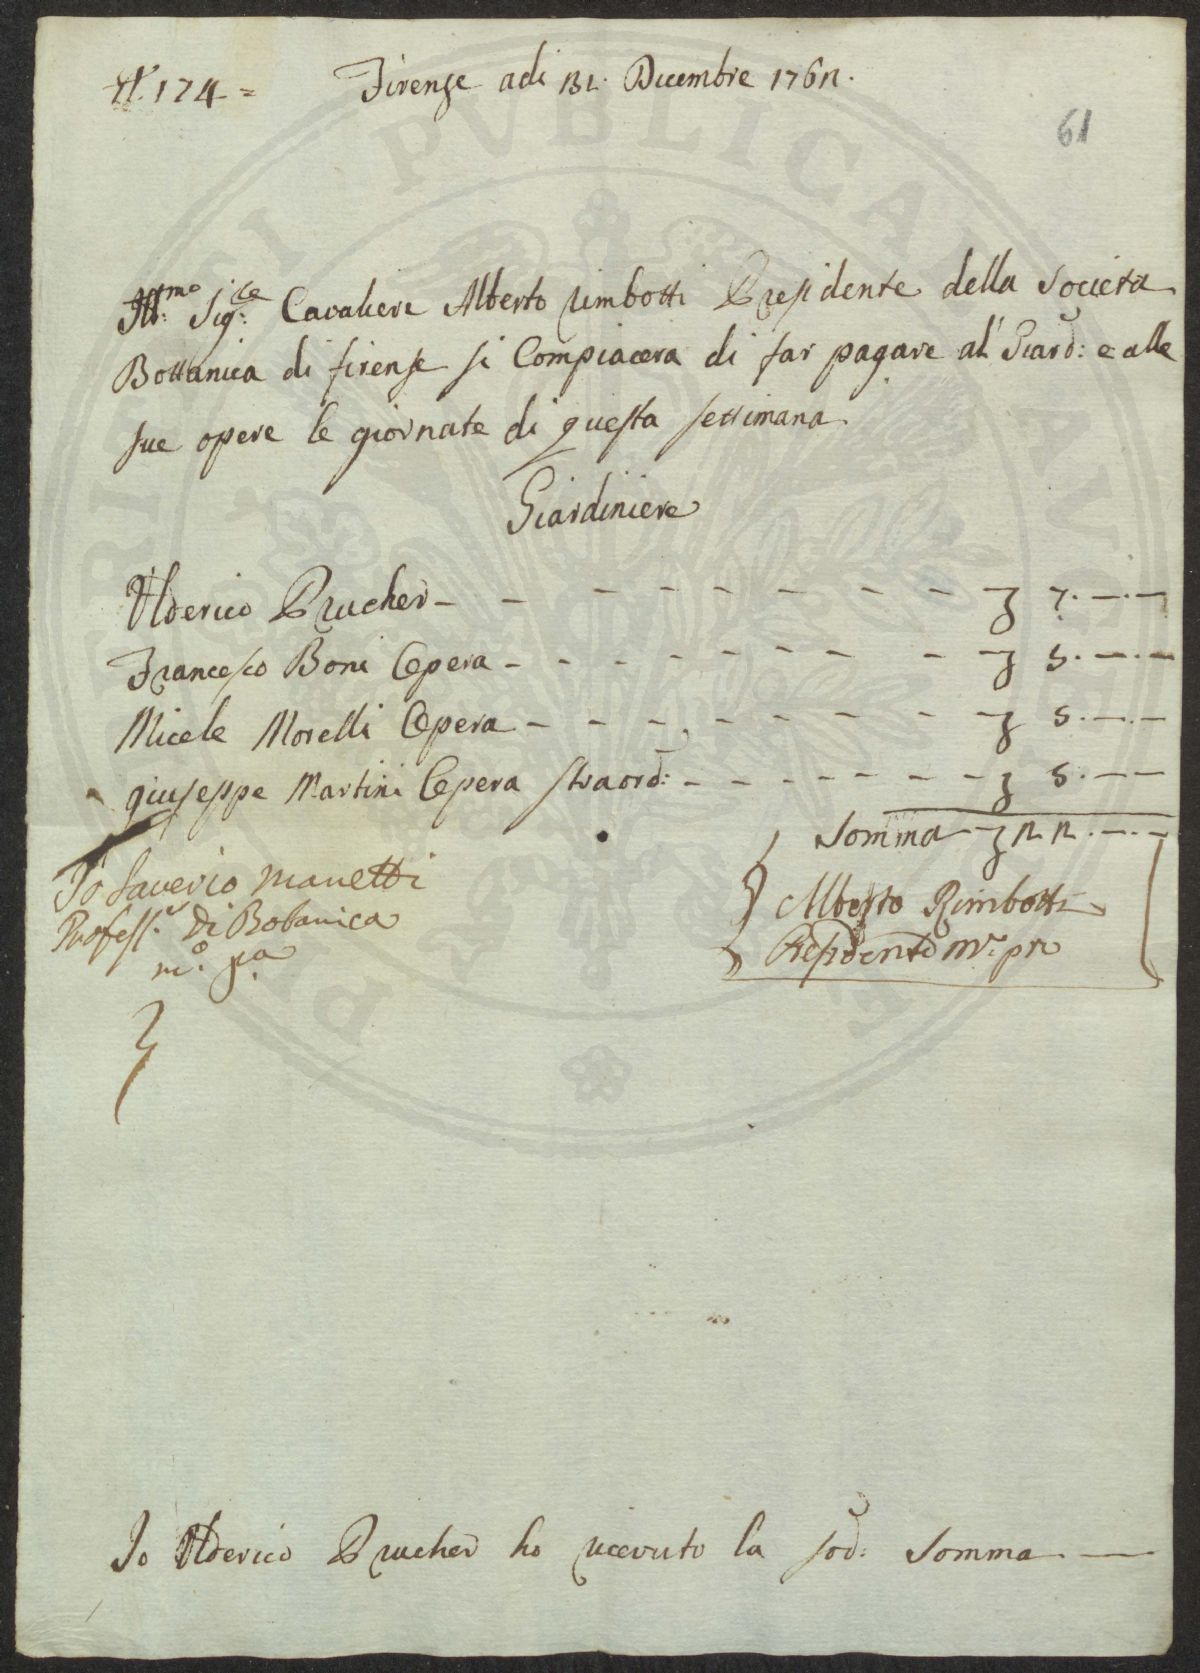 N. 174 =
Firenze adi 31. Dicembre 1762.
61
Ill:mo Sig:re Cavaliere Alberto rimbotti Presidente della Società
Bottanica di firenze si Compiacera di far pagare al' Giard: e alle
sue opere le giornate di questa settimana
Giardiniere
Ulderico Prucher - - - - - - - - - 7. — . —
Francesco Boni Opera - - - - - - - - 5. — . —
Micele Morelli Opera - - - - - - - - 5. — . —
giuseppe Martini Opera straord: - - - - - - - 5. — —
Somma 22. — . —
Io Saverio Manetti
Profess.r Di Botanica
m.o p.a
Alberto Rimbotti
Presidente m.o pr
Io Ulderico Prucher ho ricevuto la sod: Somma —